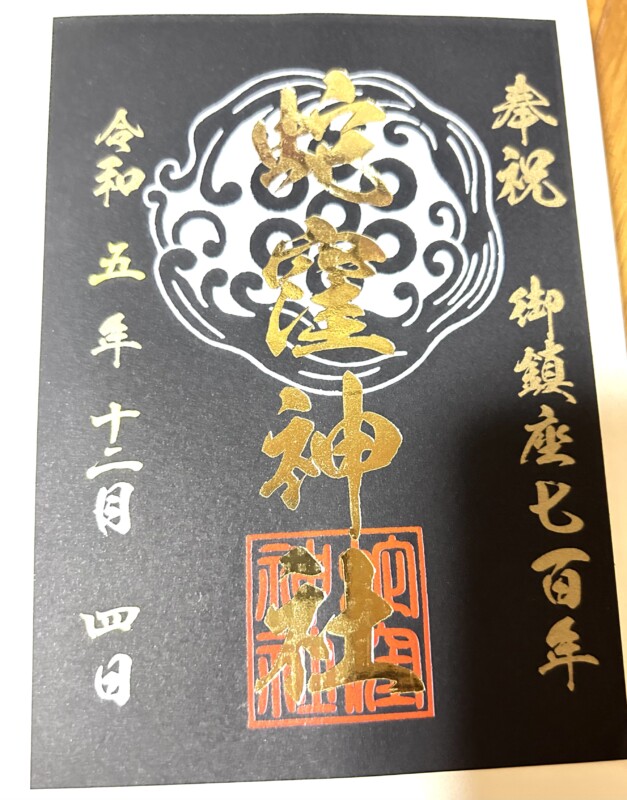 奉祝 御鎮座七百年
蛇窪神社
蛇窪神社
令和五年十二月四日